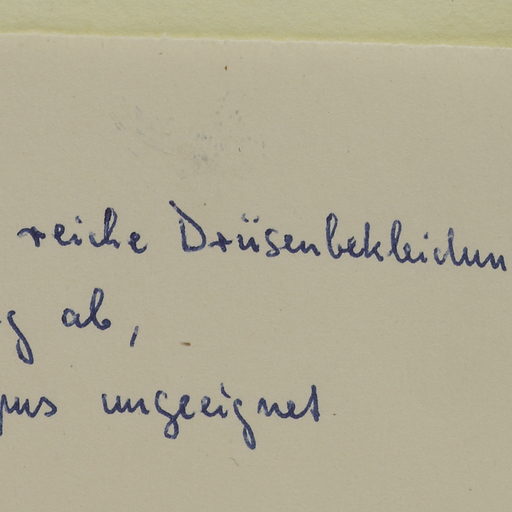 reiche Drüsenbekleidun
g ab,
pus ungeeignet